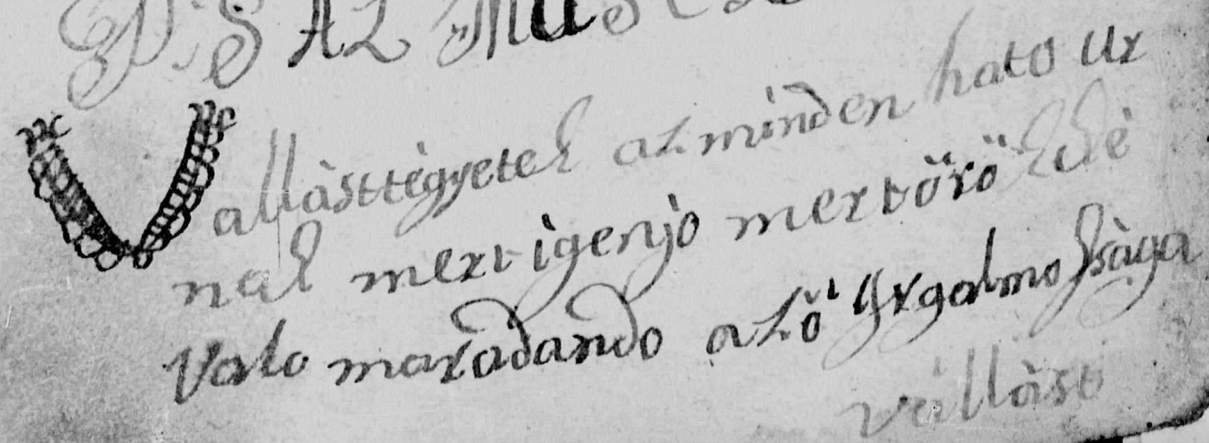 PSALMUS
Vallàsttègyetek az minden hato Ur
nak mert igenjo mert örökkè
valo maradando az ö Irgalmossàga
vallàst